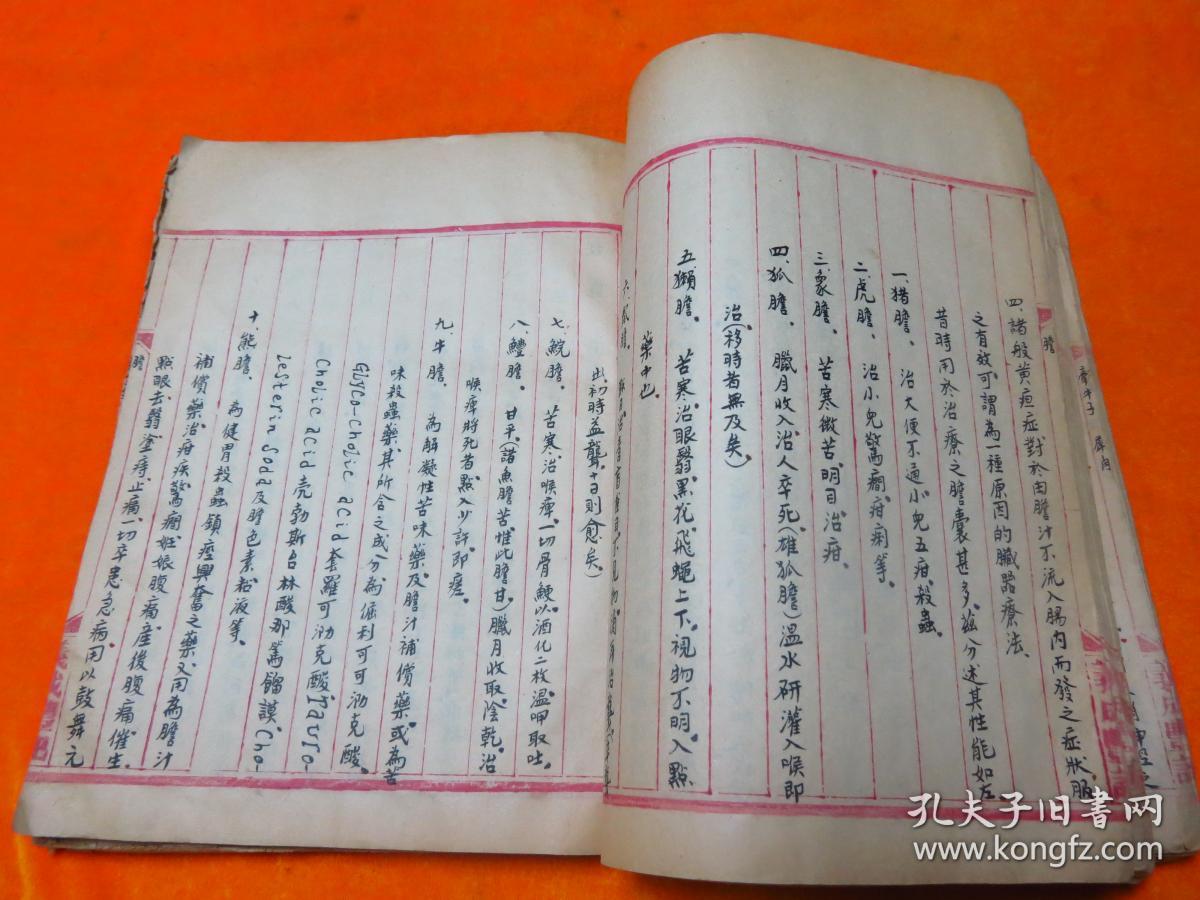 膽
四、諸般黃疸症對於因膽汁不流入腸內而發之症狀服
之有效可謂為一種原因的臟器療法。
昔時用於治療之膽囊甚多茲分述其性能如左
一、猪膽、 治大便不通小兒五疳殺蟲。
二、虎膽、 治小兒驚癇疳痢等。
三、象膽、 苦寒微苦明目治疳。
四、狐膽、 臘月收入治人卒死雄狐膽)溫水研灌入喉即
治(移時者無及矣)
五、獺膽、 苦寒治眼翳黑花飛蠅上下視物不明入點
藥中也。
出初時益聾十日則愈矣)
七、鯇膽、 苦寒治喉痺一切骨鯁以酒化二枚溫呷取吐。
八、鱧膽、 甘平(諸魚膽苦惟此膽甘)臘月收取陰乾治
喉痺將死者點入少許即瘥。
九、牛膽、 為解凝性苦味藥及膽汁補償藥或為苦
味殺蟲藥其所含之成分為倔利可可沕克酸
Glyco-cholic acid 套羅可沕克酸 Tauro-
Cholic acid 壳勃斯台林酸那篤餾謨 Cho-
lesterin Soda 及膽色素粘液等。
十、熊膽、 為健胃殺蟲鎮痙興奮之藥又用為膽汁
補償藥治疳疾驚癇妊娠腹痛產後腹痛催生
點眼去翳塗痔止痛一切卒患急病用以鼓舞元
膽
孔夫子旧书网
www.kongfz.com